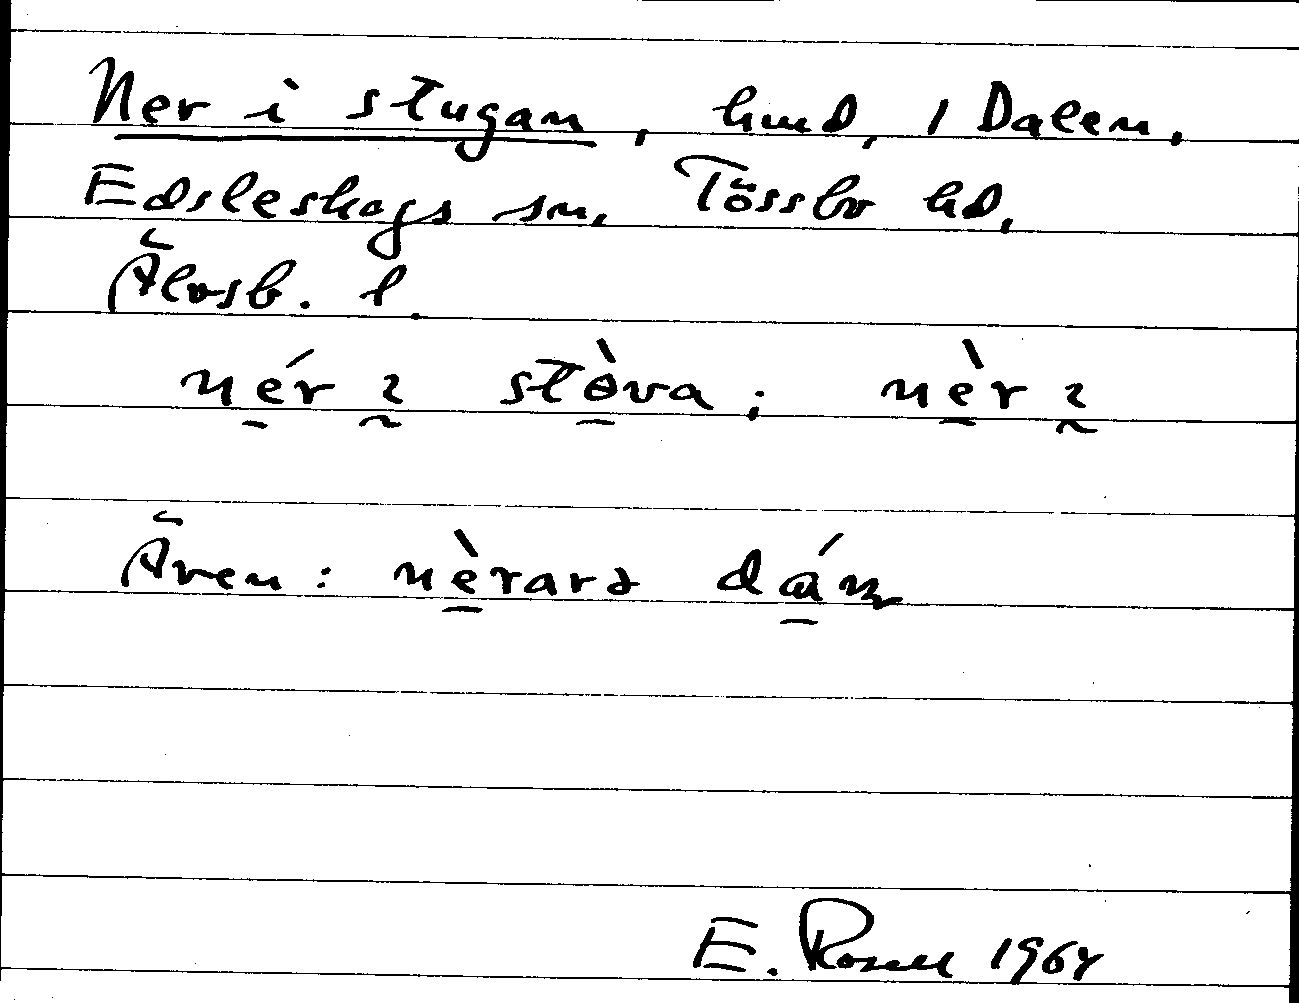 Ner i stugan, hmd, 1 Dalen,
Edsleskogs sn, Tössbo hd,
Älvsb. l.
nér ɩ stòva; nèr ɩ
Även: nèrarə
E. Rosell 1964